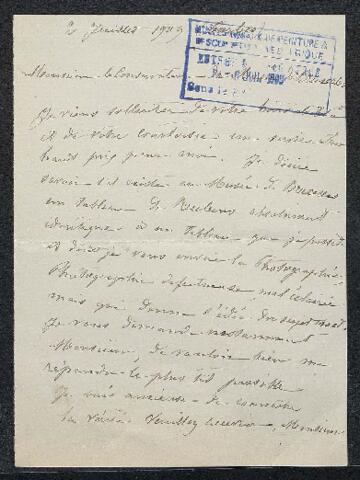 2 Juillet 1909
MUSÉES ROYAUX DE PEINTURE &
DE SCULPTURE DE BELGIQUE
Monsieur le Conservateur
Je viens solliciter de votre
et de votre courtoisie un service d'un
haut prix pour moi. Je désire
savoir s'il existe au Musée de Bruxelles
un tableau de absolument
identique à un tableau que je possède
et dont je vous envoie la Photographie.
Photographie défectueuse, mal éclairée
mais qui donne l'idée du sujet traité.
Je vous demande instamment
Monsieur, de vouloir bien me
répondre le plus tôt possible
Je suis anxieuse de connaître
la vérité. Veuillez recevoir, Monsieur